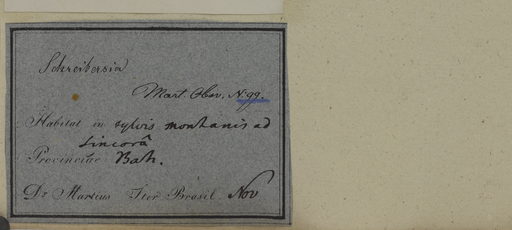 Schreibersia
Mart. Obs. N. 99.
Habitat in sylvis montanis ad
Sincorâ
Provinciae Bah.
Dr Martius Iter Brasil. Nov